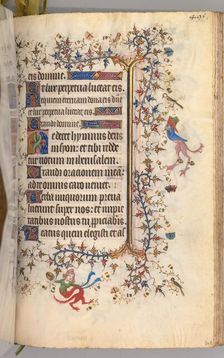 eis domine.
Et lux perpetua luceat eis.
Requiem eternam dona eis dñe
Et lux perpetua luceat eis.
exaudi domine.
Te decet hymnus deus
in syon: et tibi redde
tur votum in iherusalem.
exaudi oracionem meã
ad te omnis caro veniet.
Verba iniquorum preva
luerunt super nos: et impie
tatibus nostris tu ppiciaberis
Beatus quem elegisti et as